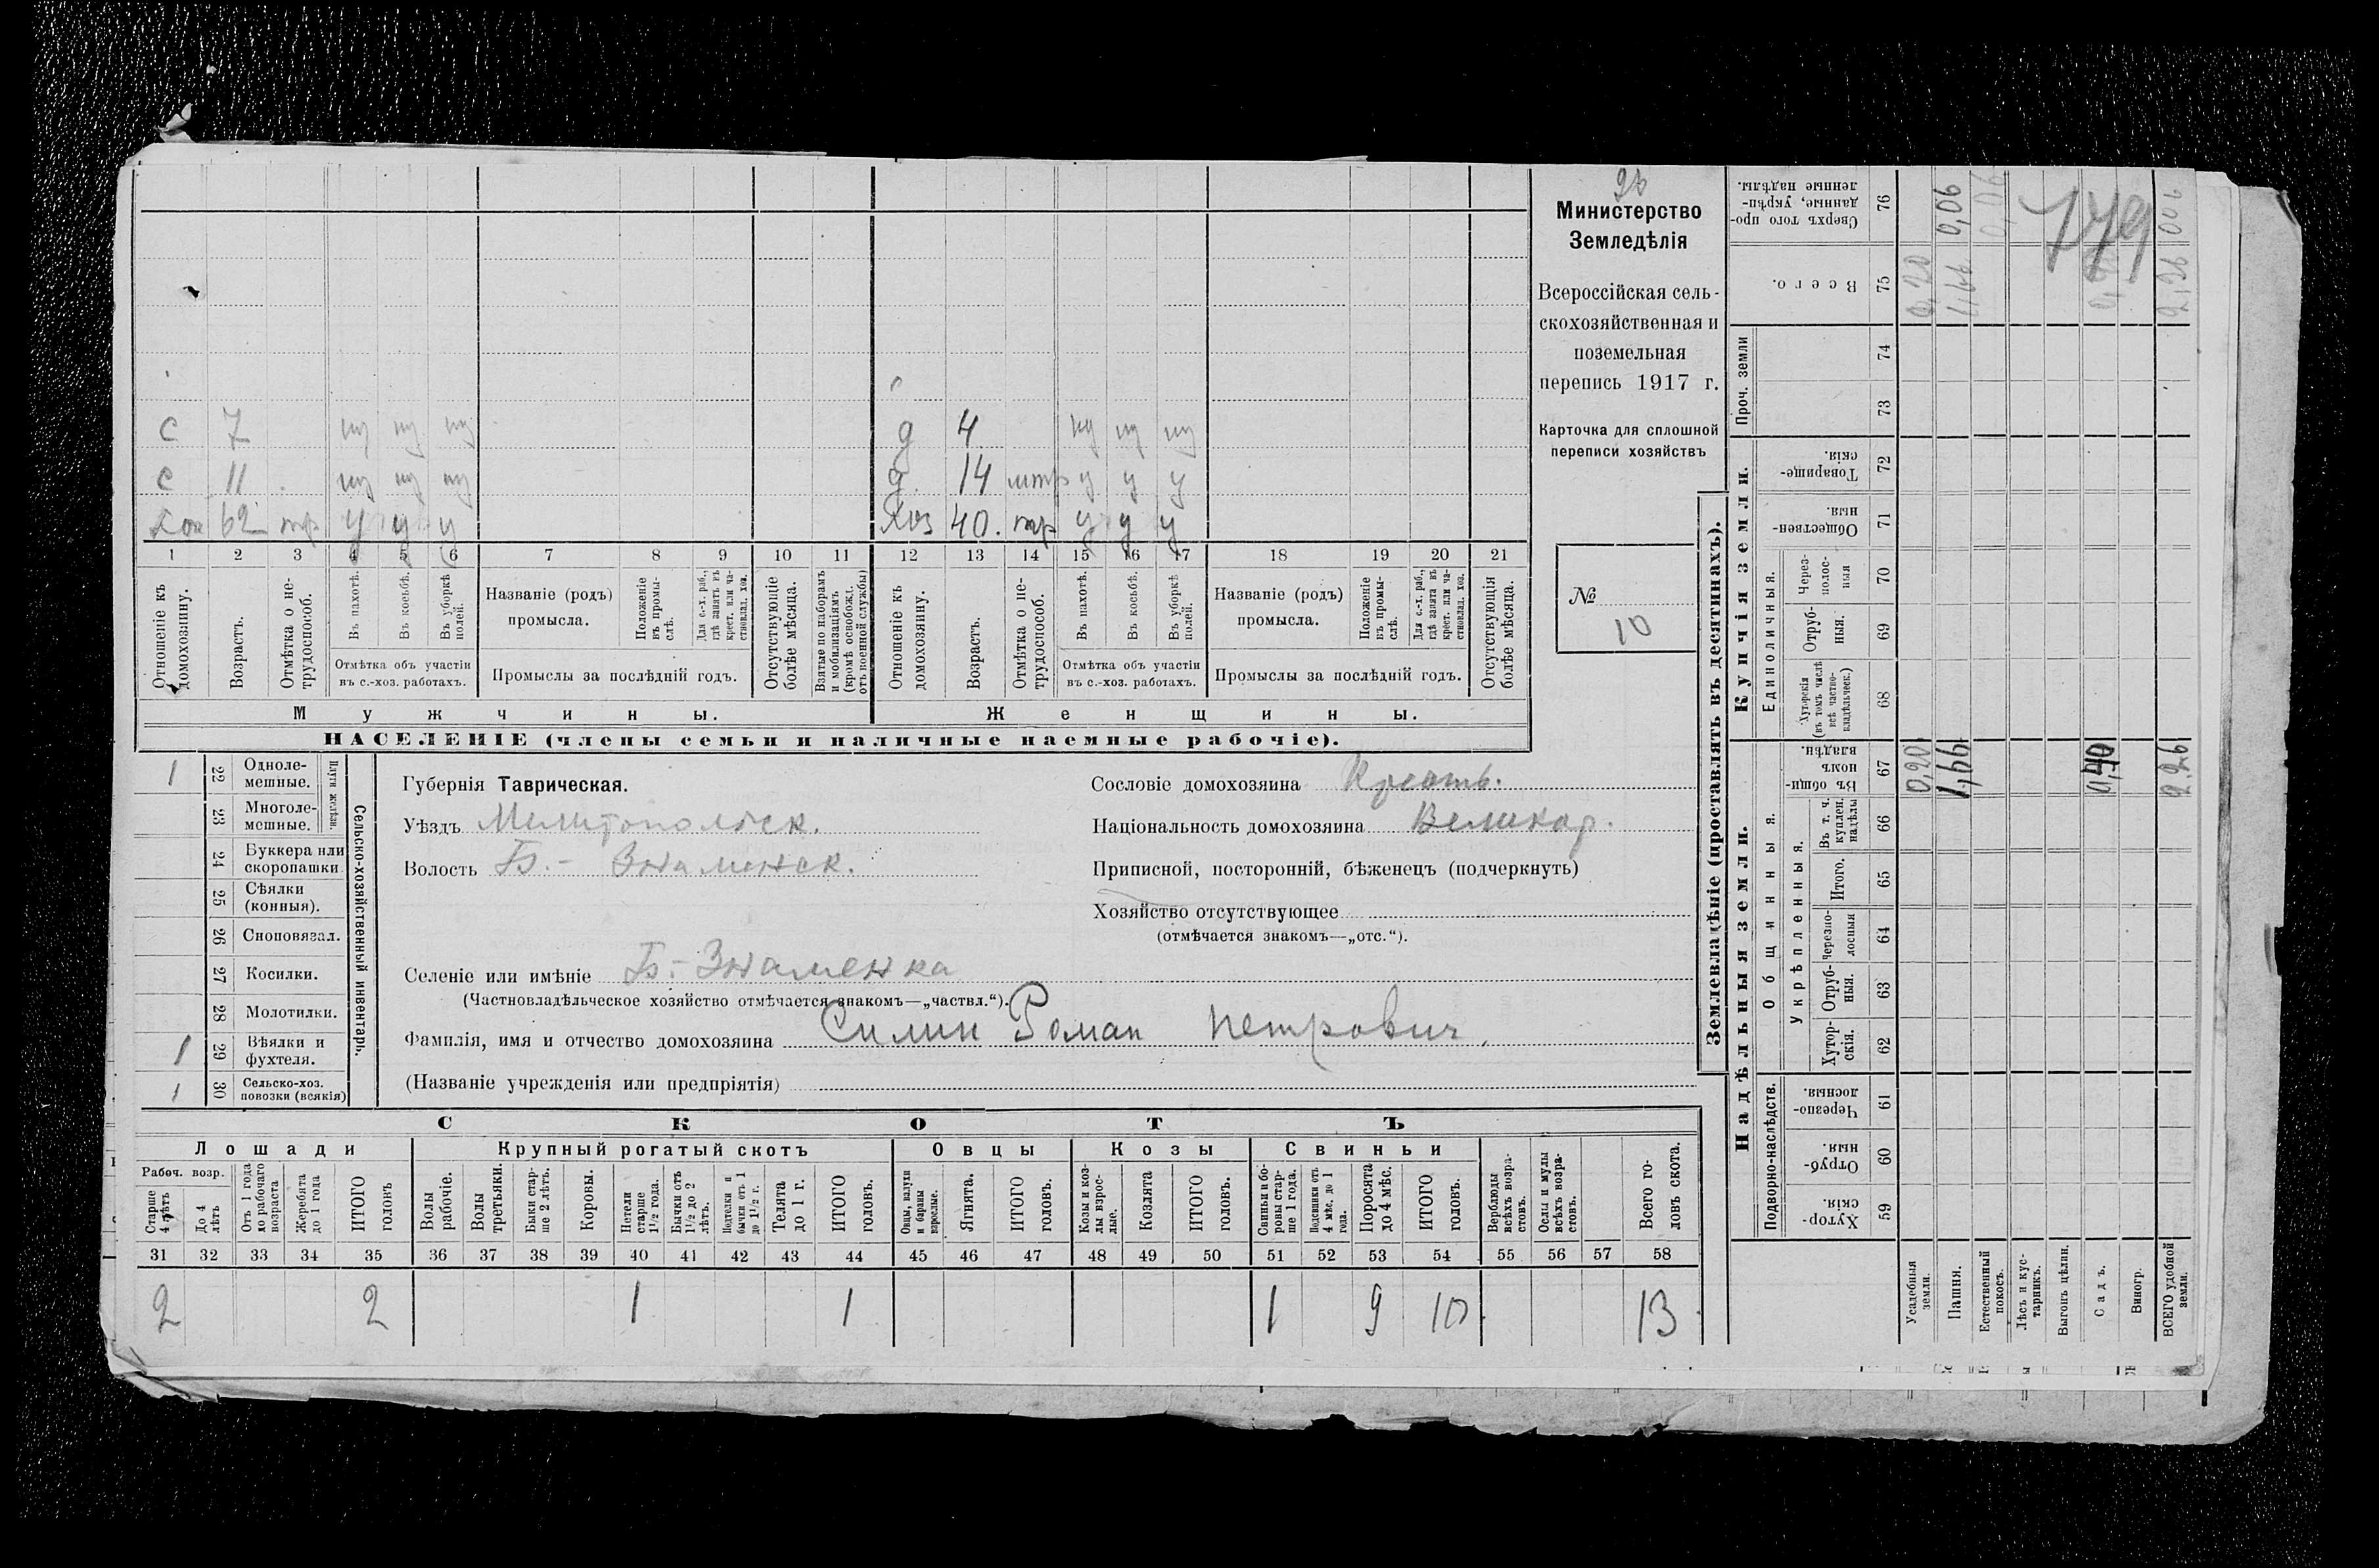 26
Министерство
Земледѣлія
Всероссійская сель-
скохозяйственная и
поземельная
перепись 1917 г.
Карточка для сплошной
переписи хозяйствъ
№
10
с 7 ну ну ну
д 4 ну ну ну
с 11 ну ну ну
д 14 у у у
Хоз 62 у у у
Хоз 40. у у у
1 2 3 4 5 6 7 8 9 10 11 12 13 14 15 16 17 18 19 20 21
Отношеніе къ домохозяину.
Возрастъ.
Отмѣтка о не-трудоспособ.
Въ пахотѣ.
Въ косьбѣ.
Въ уборкѣ полей.
Отмѣтка объ участіи
въ с.-хоз. работахъ.
Названіе (родъ)
промысла.
Положеніе въ промы-слѣ.
Для с.-х. раб., гдѣ занятъ въ крест. или ча-стновлад. хоз.
Промыслы за послѣдній годъ.
Отсутствующіе болѣе мѣсяца.
Взятые по наборамъ и мобилизаціямъ (кромѣ освобожд. отъ военной службы)
Отношеніе къ домохозяину.
Возрастъ.
Отмѣтка о не-трудоспособ.
Въ пахотѣ.
Въ косьбѣ.
Въ уборкѣ полей.
Отмѣтка объ участіи
въ с.-хоз. работахъ.
Названіе (родъ)
промысла.
Положеніе въ промы-слѣ.
Для с.-х. раб., гдѣ занята въ крест. или ча-стновлад. хоз.
Промыслы за послѣдній годъ.
Отсутствующія болѣе мѣсяца.
Мужчины.
Женщины.
НАСЕЛЕНІЕ (члены семьи и наличные наемные рабочіе).
1 22 Одноле-мешные.
23 Многоле-мешные.
Плуги желѣзн.
24 Буккера или скоропашки
25 Сѣялки (конныя).
26 Сноповязал.
27 Косилки.
28 Молотилки.
1 29 Вѣялки и фухтеля.
1 30 Сельско-хоз. повозки (всякія)
Сельско-хозяйственный инвентарь.
Губернія Таврическая.
Уѣздъ Мелитопольск.
Волость Б.- Знаменск.
Сословіе домохозяина Крестъ.
Національность домохозяина Великор.
Приписной, посторонній, бѣженецъ (подчеркнуть)
Хозяйство отсутствующее
(отмѣчается знакомъ—„отс.“).
Селеніе или имѣніе Б.-Знаменка
(Частновладѣльческое хозяйство отмѣчается знакомъ—„частвл.“).
Фамилія, имя и отчество домохозяина Силин Роман Петрович.
(Названіе учрежденія или предпріятія)
СКОТЪ
Лошади Крупный рогатый скотъ Овцы Козы Свиньи
Рабоч. возр.
Старше 4 лѣтъ
До 4 лѣтъ
Отъ 1 года до рабочаго возраста
Жеребята до 1 года
ИТОГО головъ
Волы рабочіе.
Волы третьяки.
Быки стар-ше 2 лѣтъ.
Коровы.
Нетели старше 1½ года.
Бычки отъ 1½ до 2 лѣтъ.
Подтелки и бычки отъ 1 до 1½ г.
Телята до 1 г.
ИТОГО головъ.
Овцы, валухи и бараны взрослые.
Ягнята.
ИТОГО головъ.
Козы и коз-лы взрос-лые.
Козлята
ИТОГО головъ.
Свиньи и бо-ровы стар-ше 1 года.
Подсвинки отъ 4 мѣс. до 1 года.
Поросята до 4 мѣс.
ИТОГО головъ.
Верблюды всѣхъ возра-стовъ.
Ослы и мулы всѣхъ возра-стовъ.
Всего го-ловъ скота.
31 32 33 34 35 36 37 38 39 40 41 42 43 44 45 46 47 48 49 50 51 52 53 54 55 56 57 58
2 2 1 1 1 9 10 13
Землевладѣніе (проставлять въ десятинахъ).
Надѣльныя земли.
Купчія земли.
Проч. земли
Подворно-наслѣдств.
Общинныя.
Укрѣпленныя.
Единоличныя.
Хутор-скія. 59
Отруб-ныя. 60
Черезпо-лосныя. 61
Хутор-скія. 62
Отруб-ныя. 63
Черезпо-лосныя 64
Итого. 65
Въ т. ч. куплен. надѣлы 66
Въ общин-номъ владѣн. 67
Хуторскія (въ томъ числѣ всѣ частно-владѣльческ.) 68
Отруб-ныя. 69
Через-полос-ныя 70
Обществен-ныя. 71
Товарище-скія. 72
73
74
Всего. 75
Сверхъ того про-данные, укрѣп-ленные надѣлы. 76
Усадебныя земли. 0,20 0,20
Пашня. 1,66 1,66 0,06
Естественный покосъ. 0,06
Лѣсъ и кус-тарникъ.
Выгонъ цѣлин.
Садъ. 0,40
Виногр.
ВСЕГО удобной земли. 2,26 2,26 0 06
779